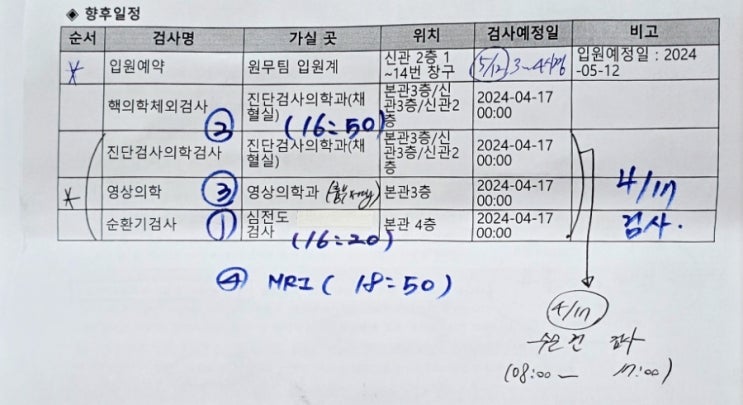 ◈ 향후일정
순서 검사명 가실 곳 위치 검사예정일 비고
* 입원예약 원무팀 입원계 신관 2층 1~14번 창구 5/12 3~4시경 입원예정일 : 2024-05-12
핵의학체외검사 진단검사의학과(채혈실) 본관3층/신관3층/신관2층 2024-04-17 00:00
② (16:50)
진단검사의학검사 진단검사의학과(채혈실) 본관3층/신관3층/신관2층 2024-04-17 00:00
* 영상의학 ③ 영상의학과 본관3층 2024-04-17 00:00
순환기검사 ① 심전도 검사 (16:20) 본관 4층 2024-04-17 00:00
4/17 검사.
④ MRI ( 18:50)
4/17
수술 전 검사
(08:00 — 17:00)